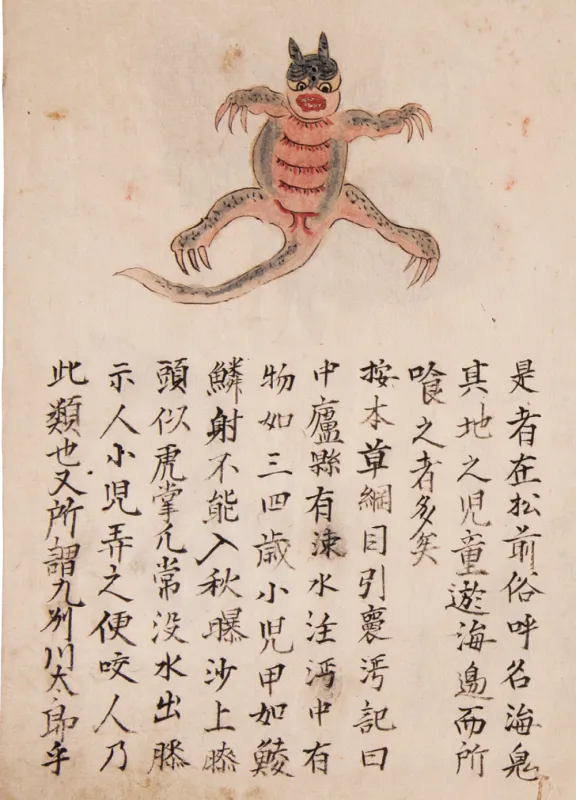 是者在松前俗呼名海鬼
其地之児童遊海邉而所
喰之者多矣
按本草綱目引襄沔記曰
中廬縣有涑水注沔中有
物如三四歳小児甲如鯪
鱗射不能入秋曝沙上膝
頭似虎掌爪常没水出膝
示人小児弄之便咬人乃
此類也又所謂九別川太郎乎